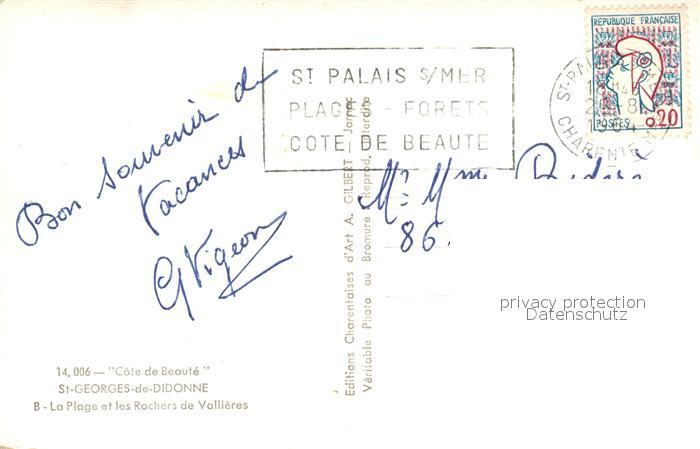 REPUBLIQUE FRANÇAISE
POSTES 0,20
ST PALAIS S/MER
PLAGE - FORETS
COTE DE BEAUTE
CHARENTE
Bon souvenir de
Vacances
GVigeon
Mr Mme
86.
Editions Charentaises d'Art A. GILBERT
Véritable Photo au Bromure - Reprod. interdite
privacy protection
Datenschutz
14.006 — "Côte de Beauté"
St-GEORGES-de-DIDONNE
B - La Plage et les Rochers de Vallières